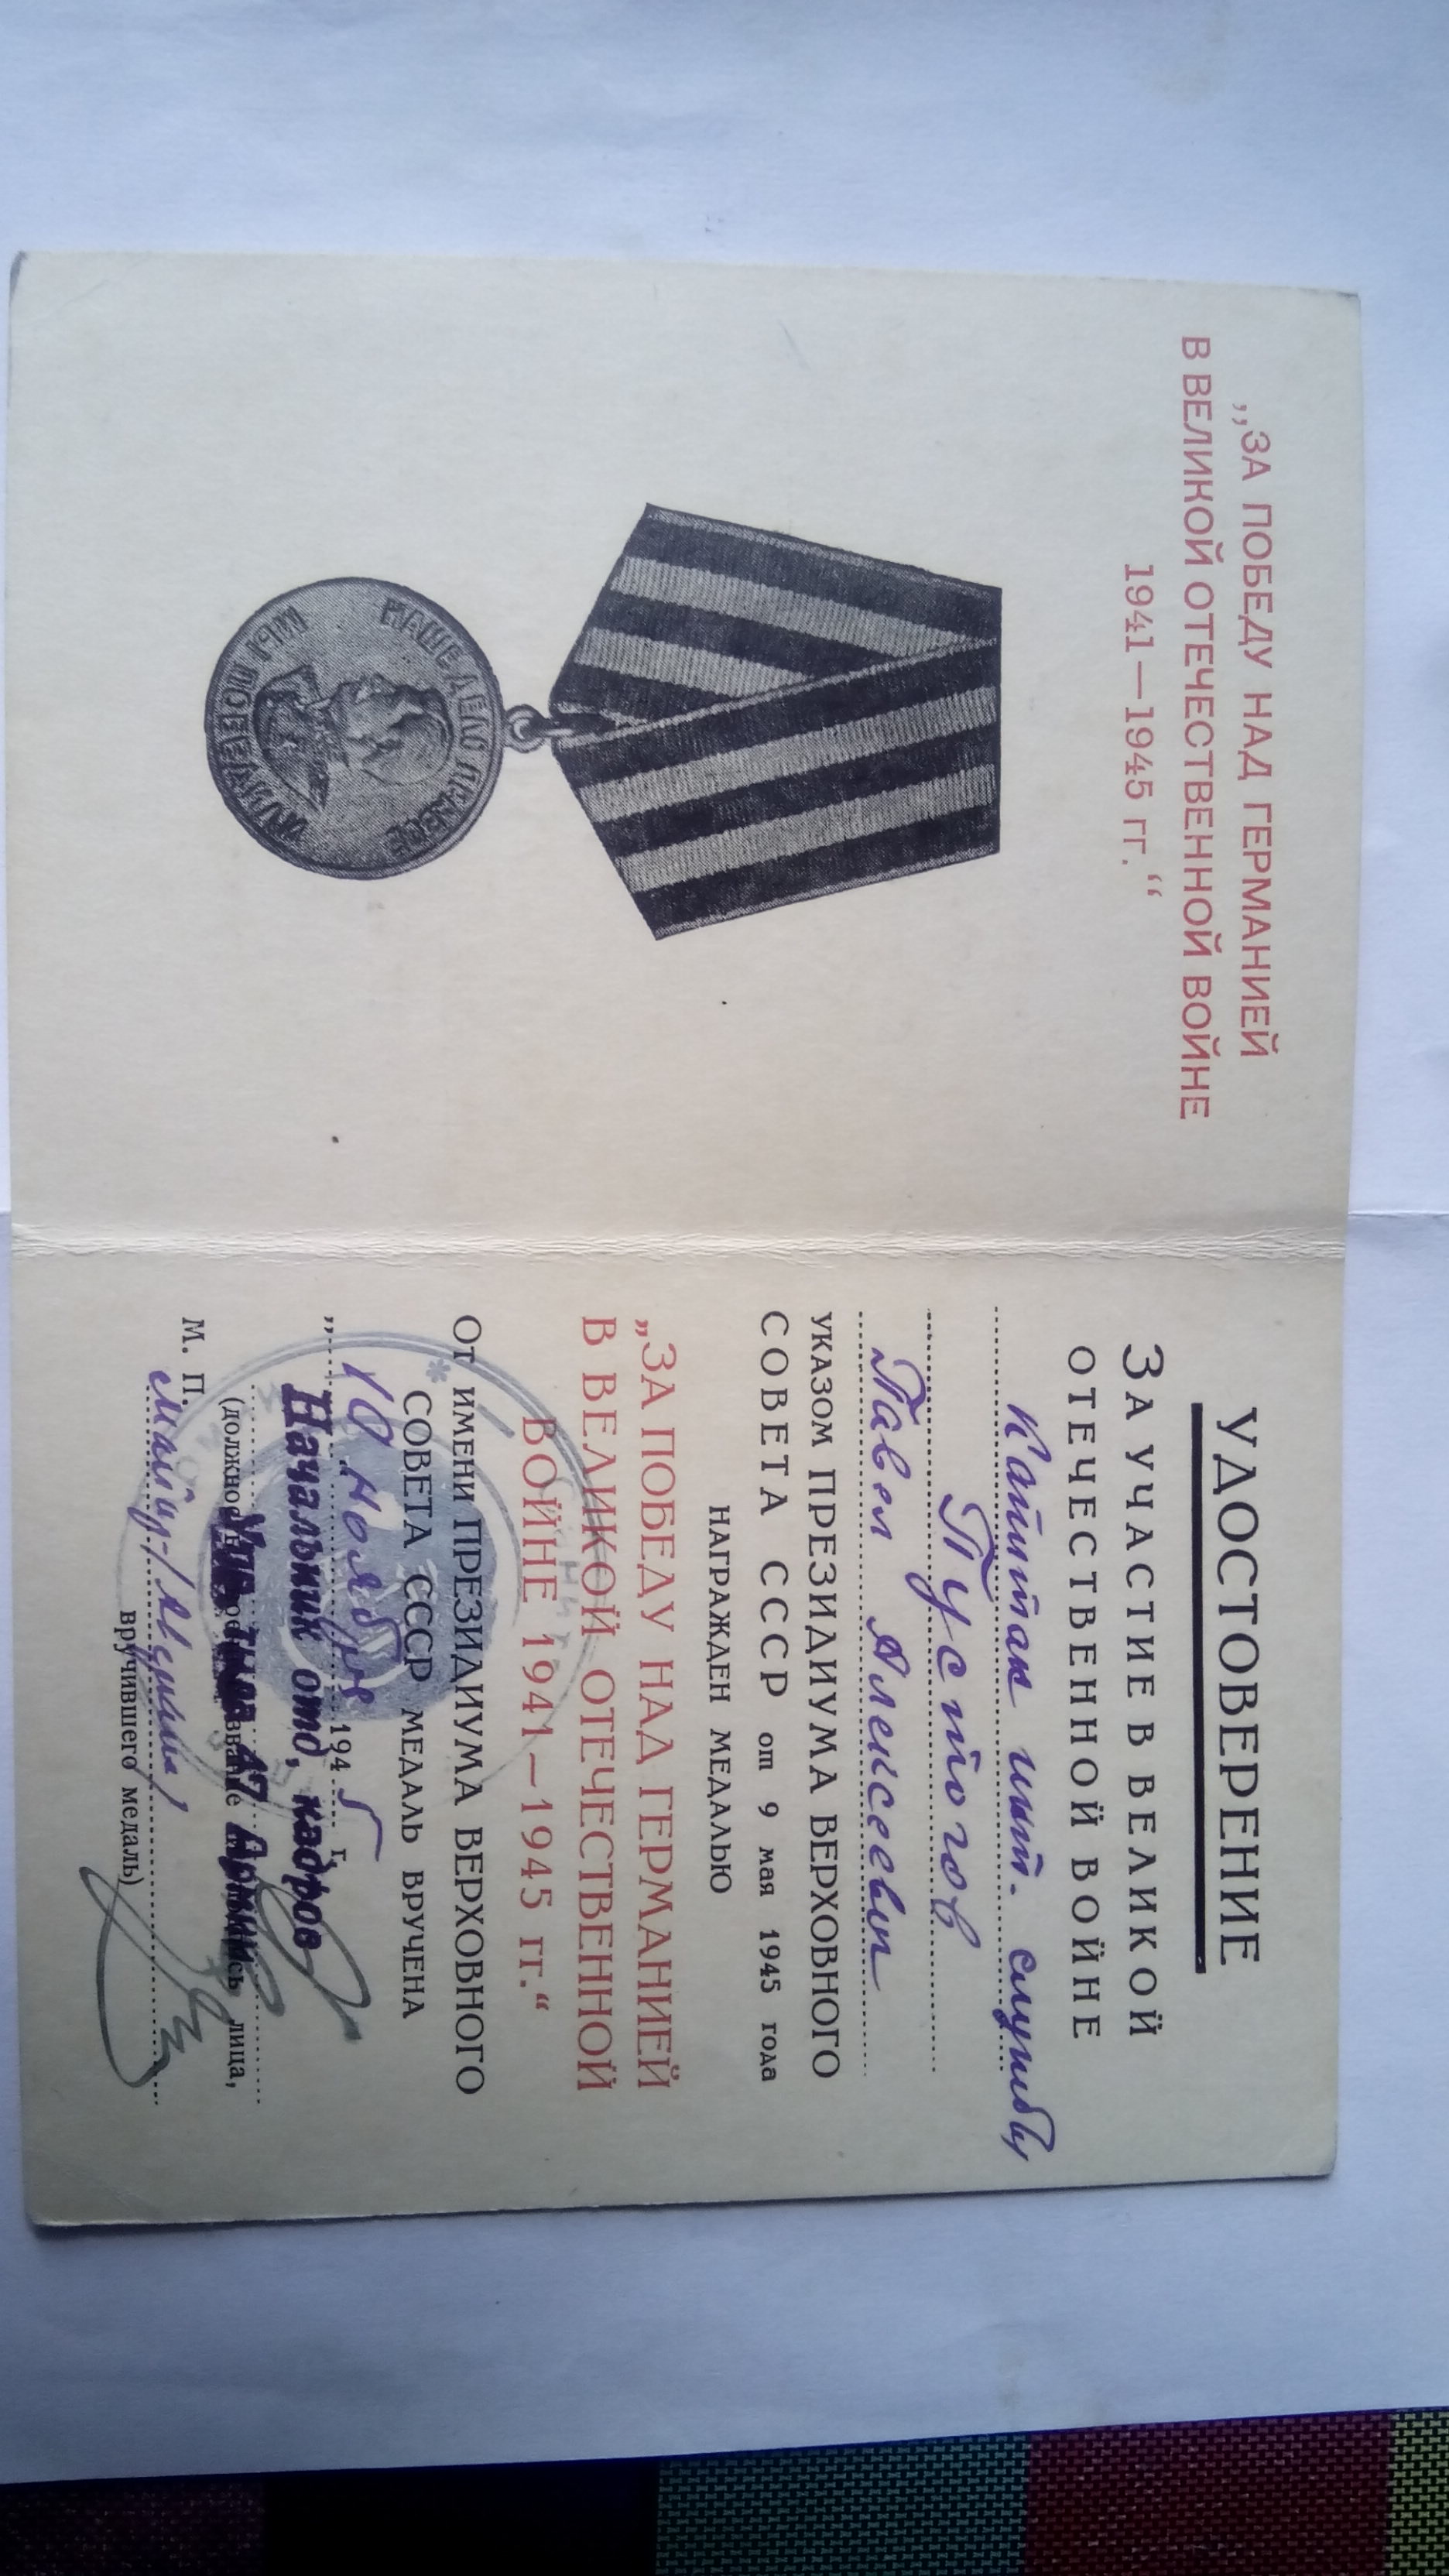 „ЗА ПОБЕДУ НАД ГЕРМАНИЕЙ
В ВЕЛИКОЙ ОТЕЧЕСТВЕННОЙ ВОЙНЕ
1941—1945 гг.“
НАШЕ ДЕЛО ПРАВОЕ
МЫ ПОБЕДИЛИ
УДОСТОВЕРЕНИЕ
ЗА УЧАСТИЕ В ВЕЛИКОЙ
ОТЕЧЕСТВЕННОЙ ВОЙНЕ
Капитан инт. службы
Пустогов
Павел Алексеевич
УКАЗОМ ПРЕЗИДИУМА ВЕРХОВНОГО
СОВЕТА СССР от 9 мая 1945 года
НАГРАЖДЕН МЕДАЛЬЮ
„ЗА ПОБЕДУ НАД ГЕРМАНИЕЙ
В ВЕЛИКОЙ ОТЕЧЕСТВЕННОЙ
ВОЙНЕ 1941—1945 гг.“
От ИМЕНИ ПРЕЗИДИУМА ВЕРХОВНОГО
СОВЕТА СССР МЕДАЛЬ ВРУЧЕНА
„10 ноября 1945 г.
Начальник отд. кадров
47 Армии
лица,
М. П.
майор
вручившего медаль)